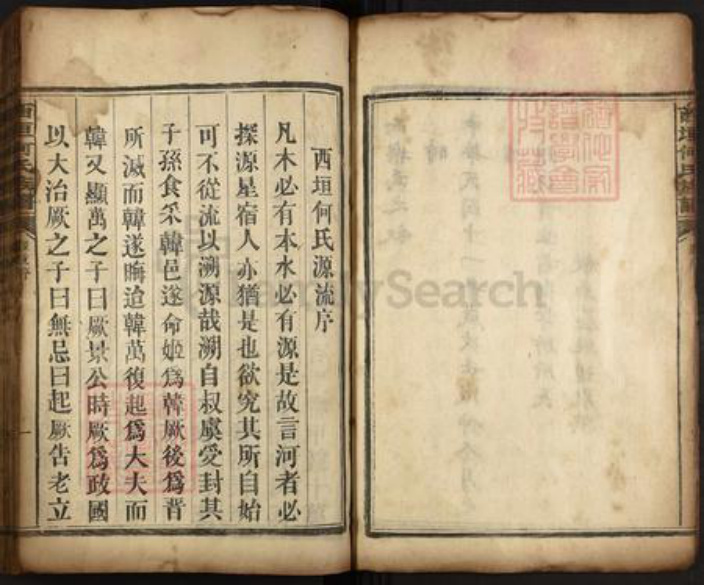 西垣何氏源流序
凡木必有本水必有源是故言河者必
探源星宿人亦猶是也欲究其所自始
可不從流以溯源哉溯自叔虞受封其
子孫食采韓邑遂命姬爲韓厥後爲晋
所滅而韓遂晦迨韓萬復起爲大夫而
韓又顯萬之子曰厥景公時厥爲政國
以大治厥之子曰無忌曰起厥告老立
西垣何氏族譜
FamilySearch